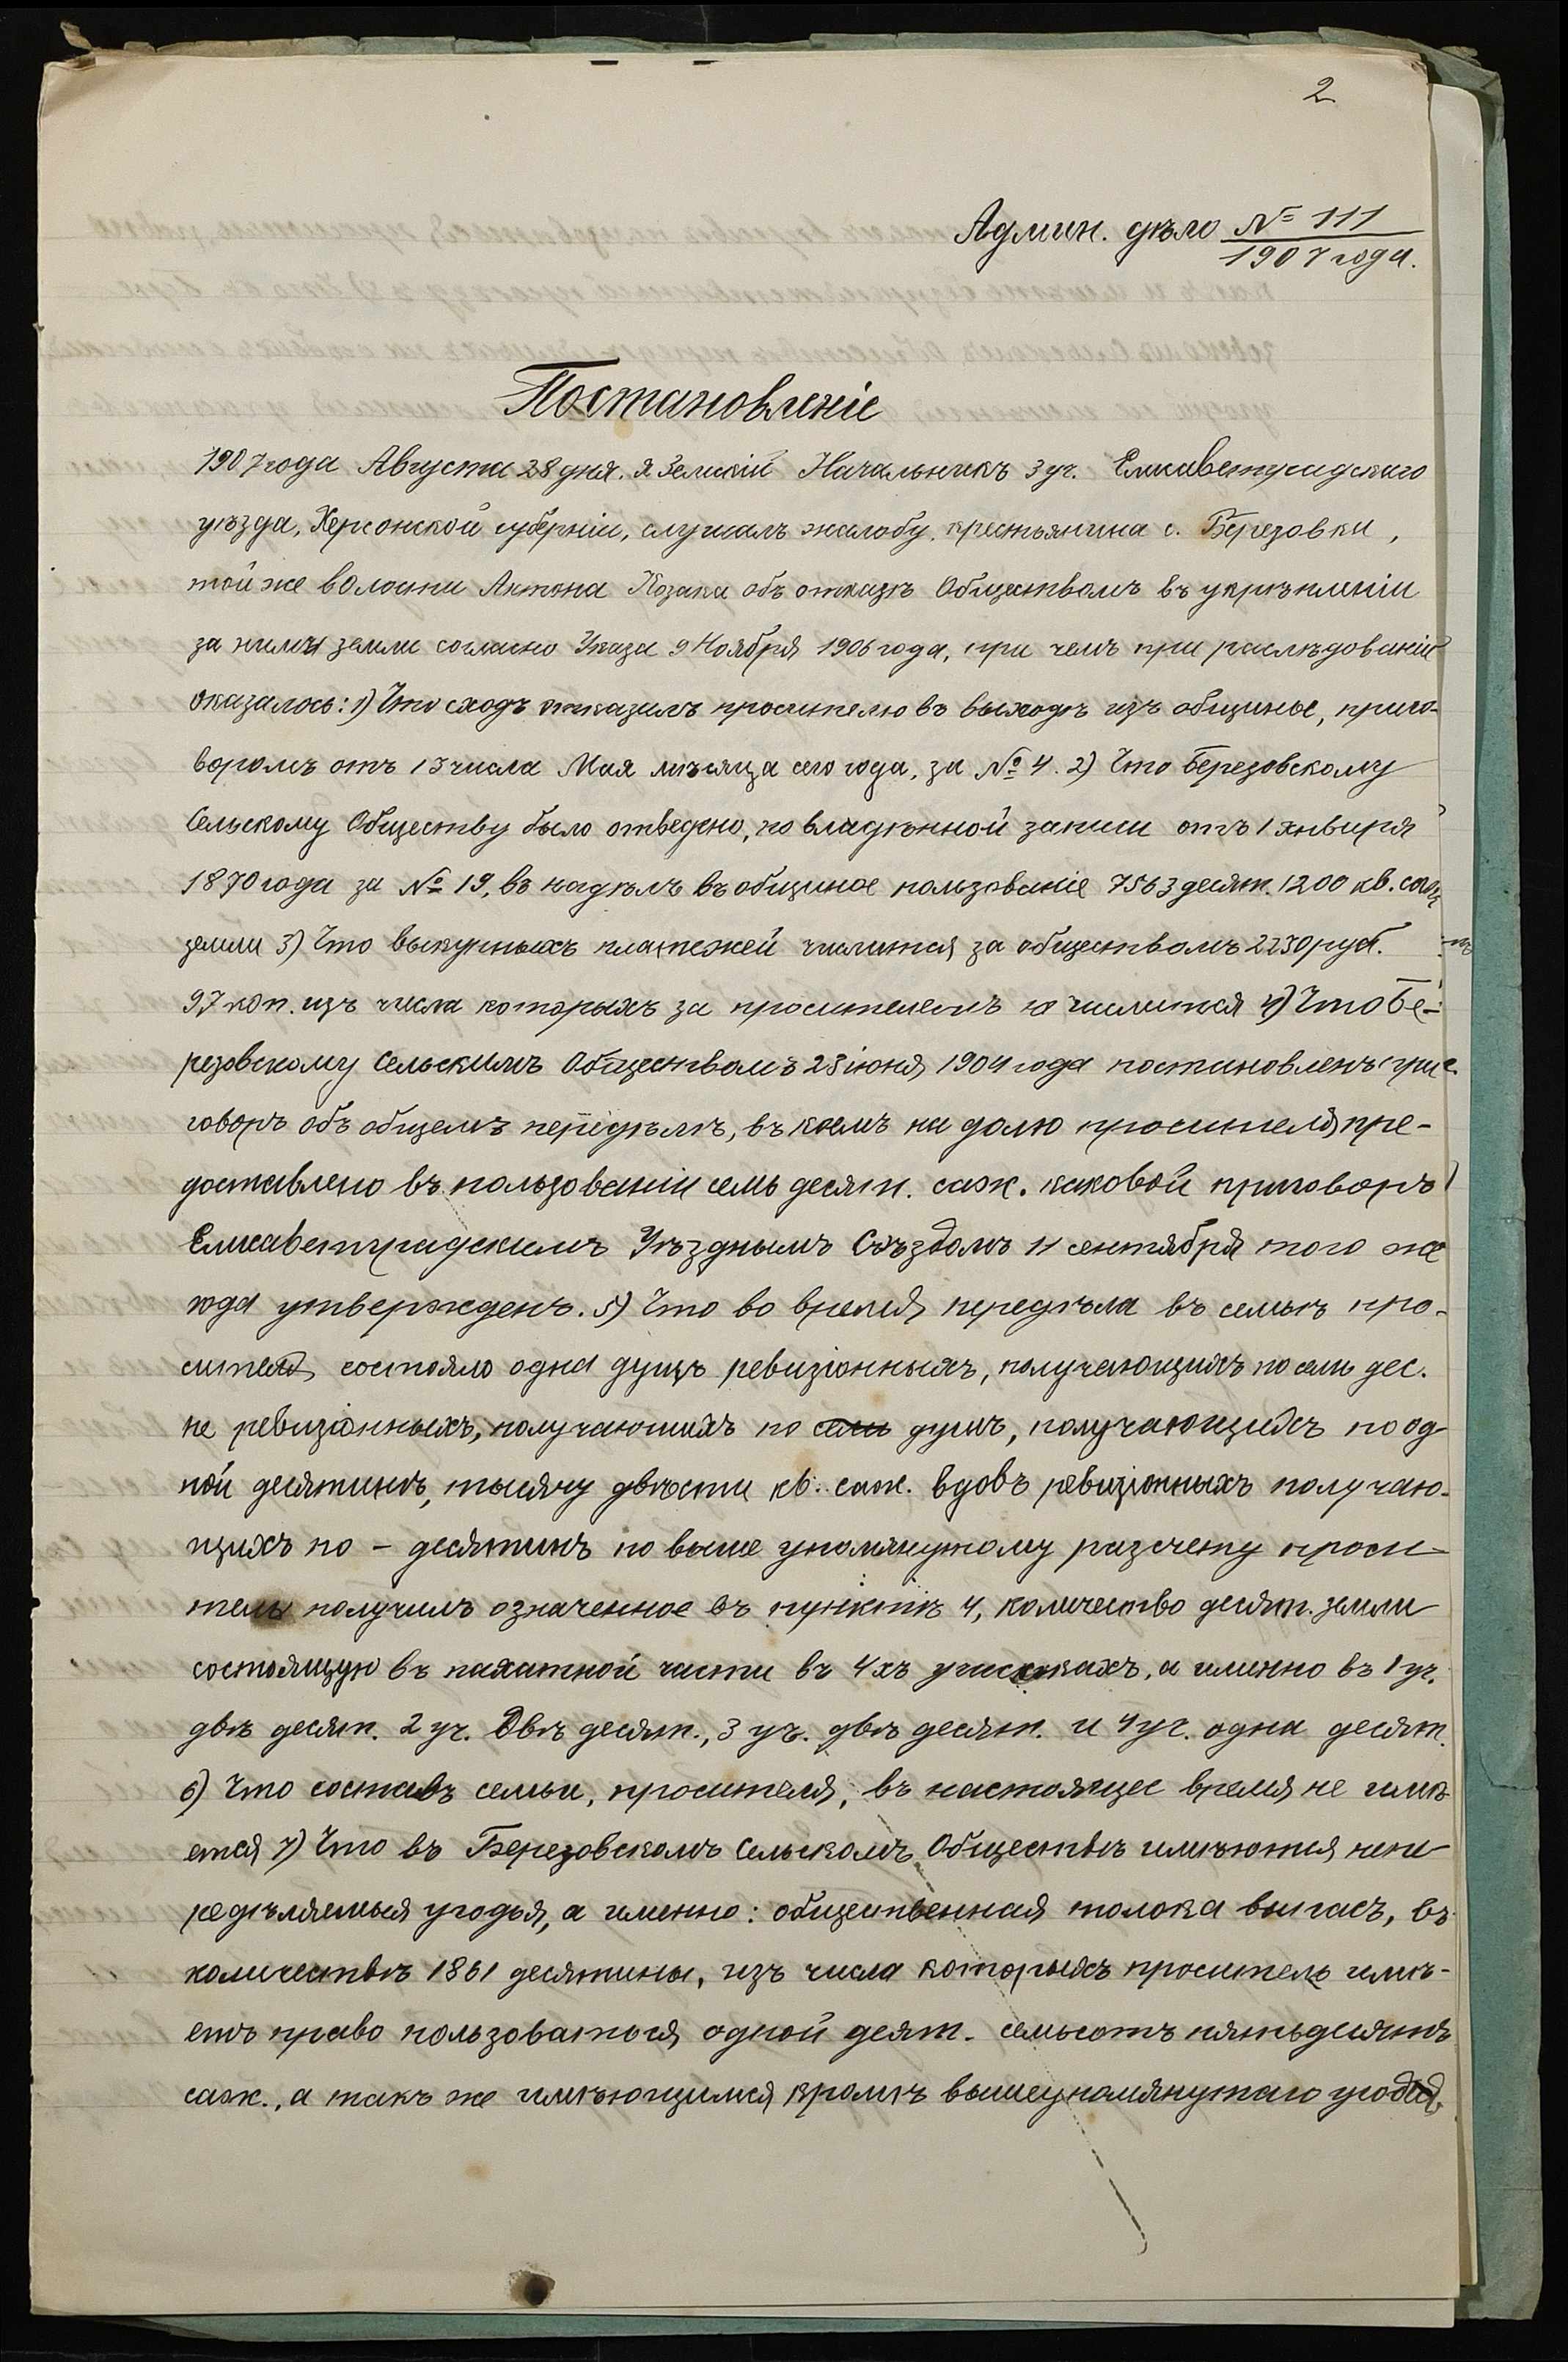 2
Админ. дѣло № 111
1907 года.
Постановленіе
1907 года Августа 28 дня. Я Земскій Начальникъ 3 уч. Елисаветградскаго
уѣзда, Херсонской губерніи, слушалъ жалобу крестьянина с. Березовки,
той же волости Антона Козака объ отказѣ Обществомъ въ укрѣпленіи
за нимъ земли согласно Указа 9 Ноября 1906 года, при чемъ при разслѣдованіи
оказалось: 1) Что сходъ отказалъ просителю въ выходѣ изъ общины, приго-
воромъ отъ 13 числа Мая мѣсяца сего года, за № 4. 2) Что Березовскому
Сельскому Обществу было отведено, по владѣнной записи отъ 1 января
1870 года за № 19, въ надѣлъ въ общиное пользованіе 7563 десят. 1200 кв. саж.
земли 3) Что выкупныхъ платежей числится за обществомъ 2230 руб.
97 коп. изъ числа которыхъ за просителемъ не числится 4) Что Бе-
резовскому Сельскимъ Обществомъ 28 іюня 1904 года постановленъ при-
говоръ объ общемъ передѣлѣ, въ коемъ на долю просителя пре-
доставлено въ пользованіи семь десят. саж. каковой приговоръ
Елисаветградскимъ Уѣзднымъ Съѣздомъ 11 сентября того же
года утвержденъ. 5) Что во время передѣла въ семьѣ про-
сителя состояло одна душъ ревизіонныхъ, получающихъ по семь дес.
не ревизіонныхъ, получающихъ по семь душъ, получающихъ по од-
ной десятинѣ, тысячу двѣсти кв. саж. вдовъ ревизіонныхъ получаю-
щихъ по – десятинъ по выше упомянутому разсчету проси-
тель получилъ означенное въ пунктѣ 4, количество десят. земли
состоящую въ пахатной части въ 4хъ участкахъ, а именно въ 1 уч.
двѣ десят. 2 уч. двѣ десят., 3 уч. двѣ десят. и 4 уч. одна десят.
6) Что составъ семьи, просителя, въ настоящее время не имѣ-
ется 7) Что въ Березовскомъ Сельскомъ Обществѣ имѣются непе-
редѣляемыя угодья, а именно: общественная толока выгасъ, въ
количествѣ 1861 десятины, изъ числа которыхъ проситель имѣ-
етъ право пользоваться одной деят. семьсотъ пятьдесятъ
саж., а такъ же имѣющимся кромѣ вышеупомянутаго угодья